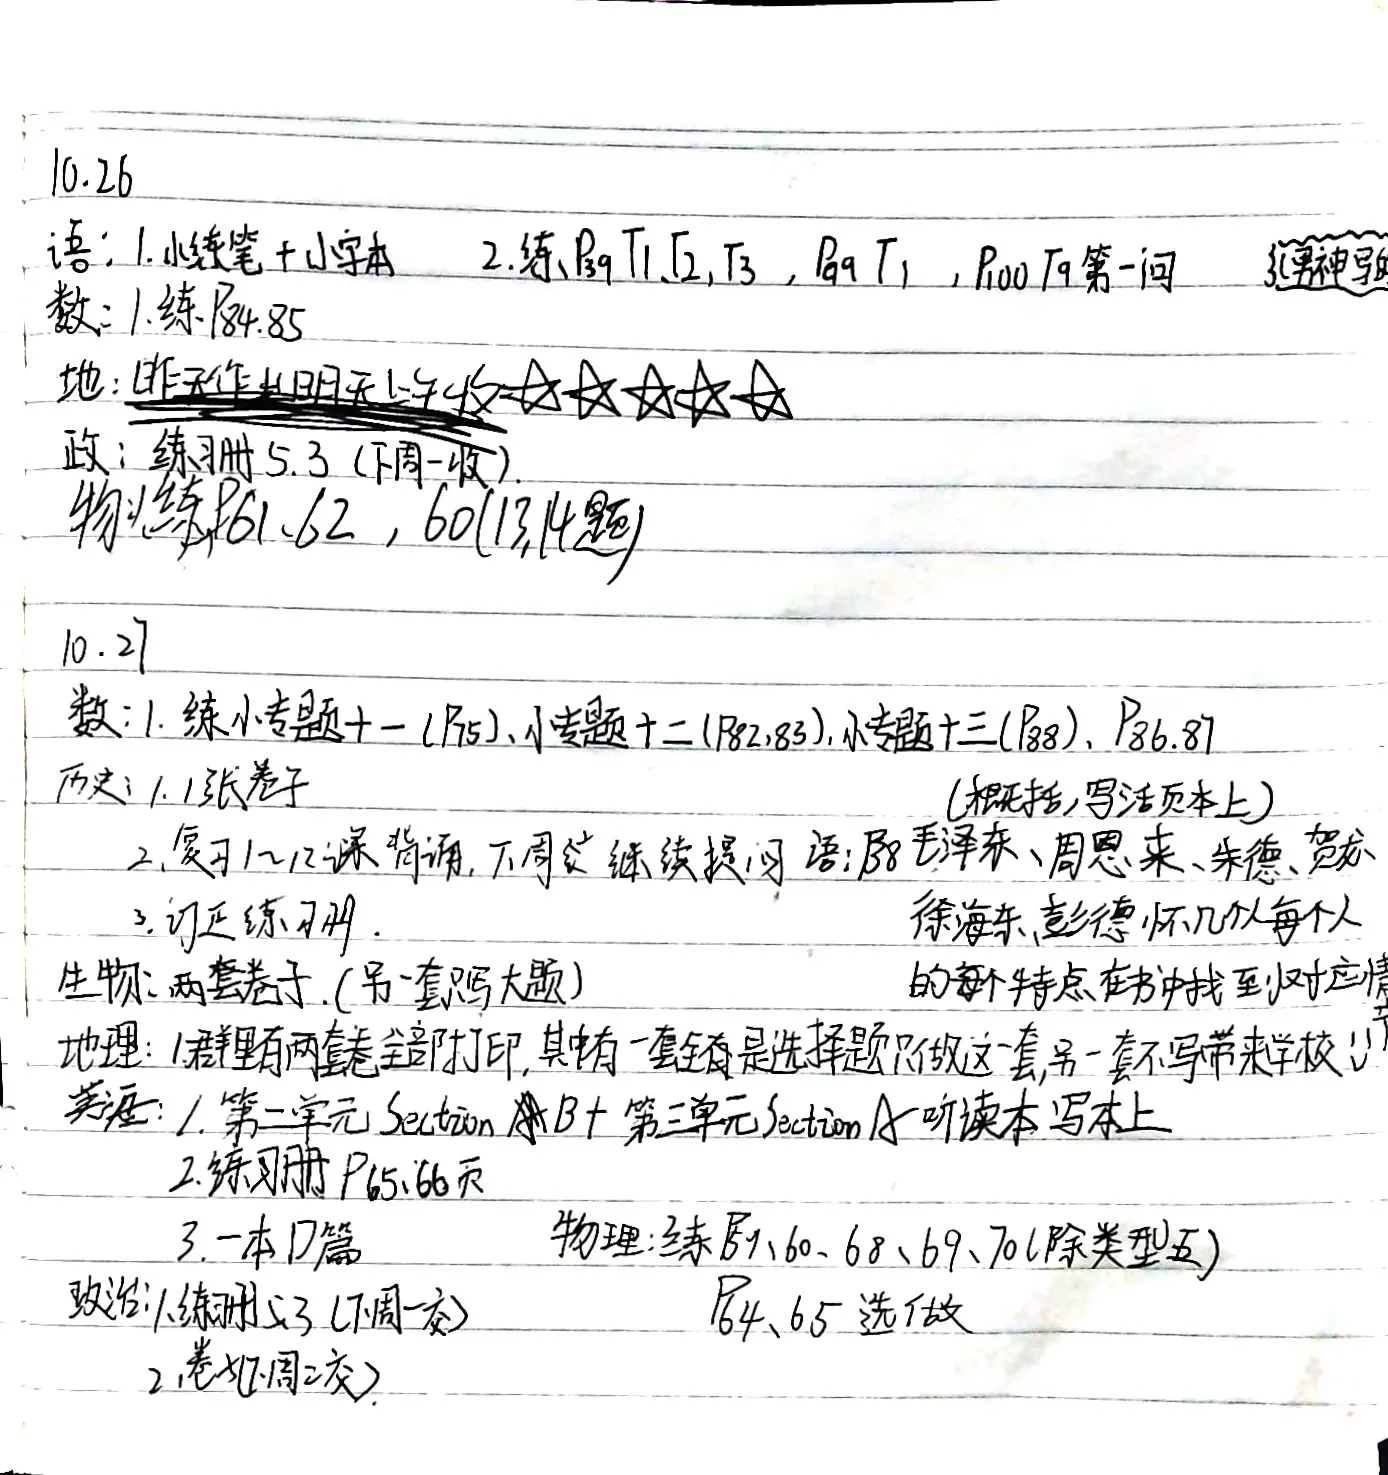 10.26
语：1.小练笔＋小字本 2.练、P39 T1、T2，T3，P99 T1，P100 T9 第一问 (男神写的
数：1.练P84.85
地：昨天作业明天上午收☆☆☆☆☆
政：练习册5.3（下周一收）
物：练P61、62，60(13,14题)
10.27
数：1.练小专题十一(P75)、小专题十二(P82,83)，小专题十三(P88)、P86.87
历史：1.1张卷子
(概括，写活页本上)
2.复习1～12课背诵，下周 继续提问 语：毛泽东、周恩来、朱德、贺龙
3.订正练习册.
徐海东、彭德怀几个人每个人
生物：两套卷子.(另一套只写大题)
的每个特点在书中找到对应情节
地理：1.群里有两套卷全部打印，其中有一套全是选择题只做这一套，另一套不写带来学校
英语：1.第二单元 Section B＋第三单元 Section A 听读本写本上
2.练习册P65、66页
3.一本17篇 物理：练P59、60、68、69、70(除类型五)
政治：1.练习册5.3(下周一交) P64、65 选做
2.卷子(下周二交)